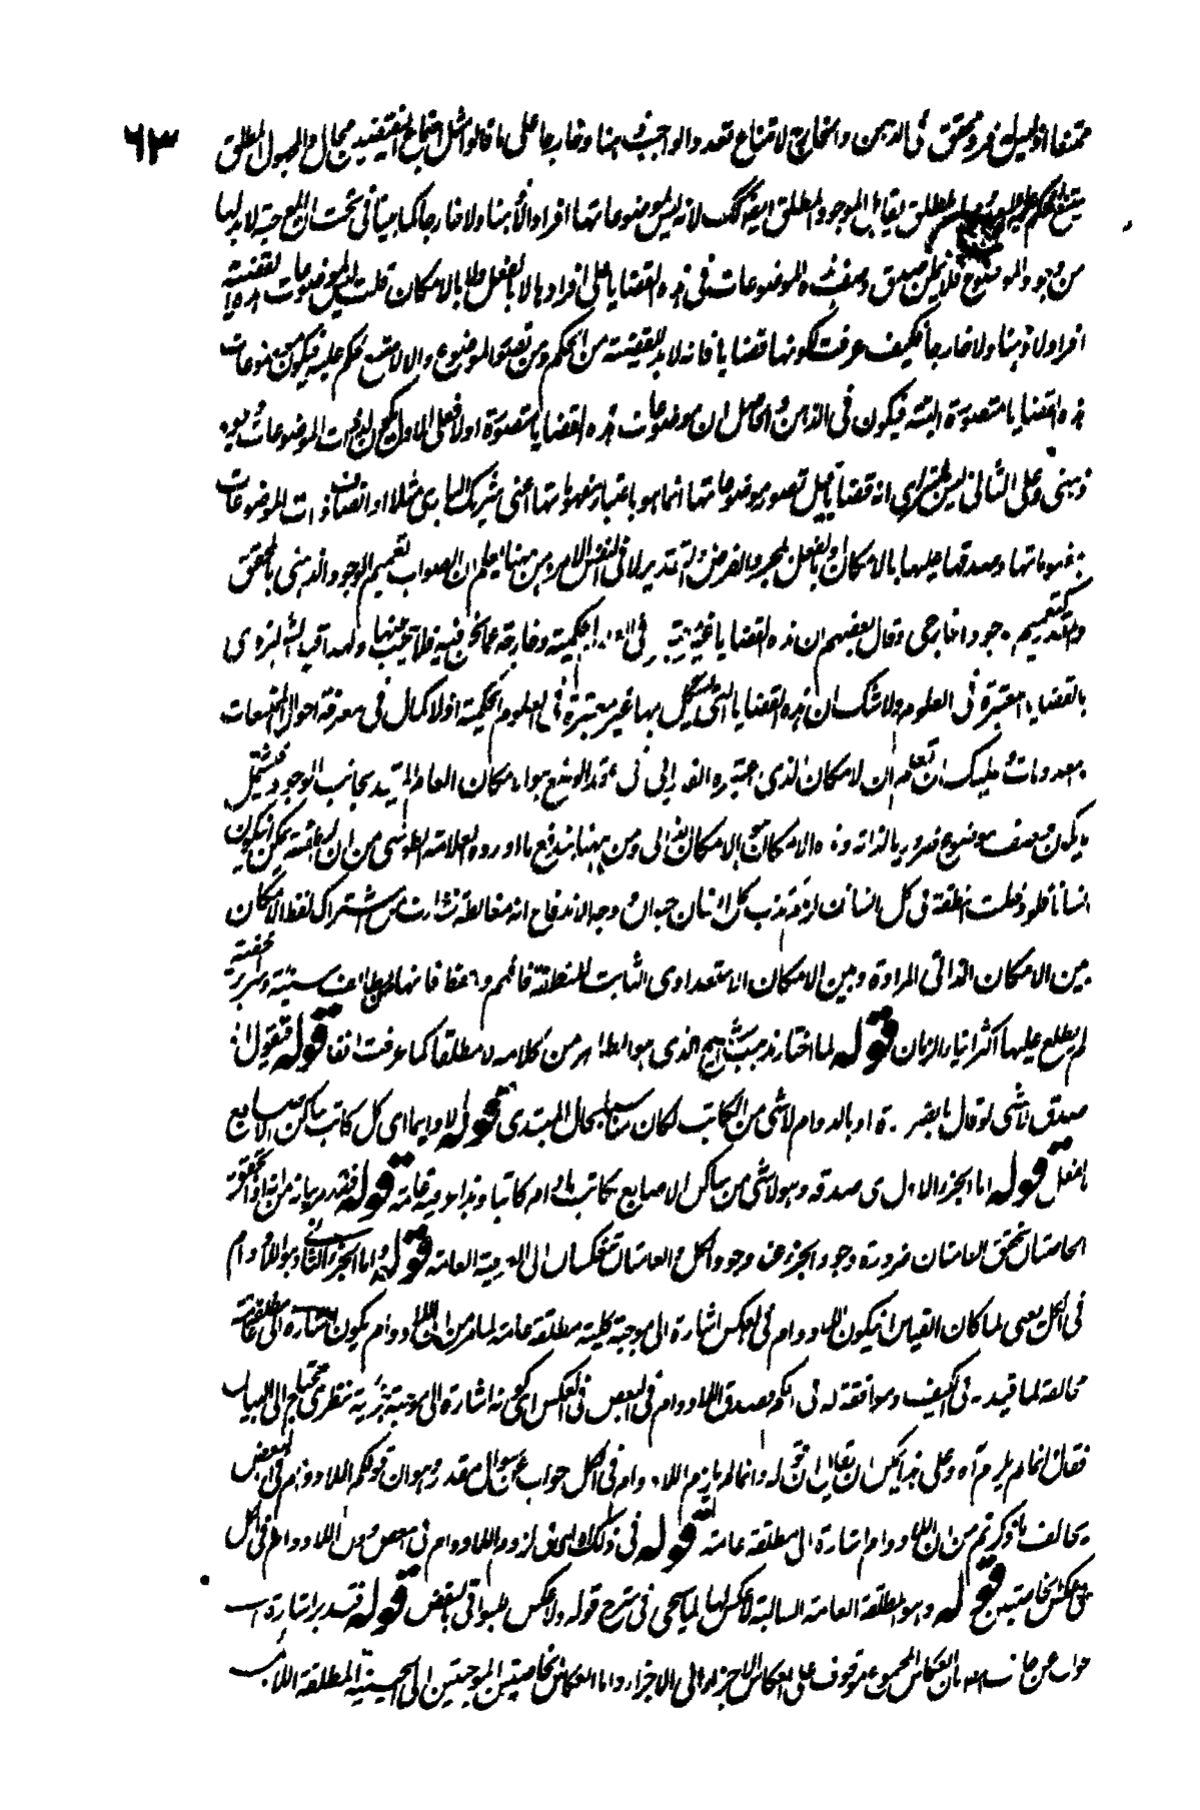 ٦٣
ممتنعا اذ ليس له فرد محقق في الذهن والخارج لامتناع تعدد الواجب ذهنا وخارجا على ما قالوا مثل اجتماع النقيضين محال والمجهول المطلق
يمتنع الحكم عليه المطلق يقابل الموجود المطلق ايضا كك لانه ليس لموضوعاتها افراد لا ذهنا ولا خارجا كما بينا في تحت ان الموجبة لا بد لها
من وجود الموضوع فلا يمكن صدق وصف هذه الموضوعات في هذه القضايا على افرادها لا بالفعل ولا بالامكان قلت ليس لموضوعات هذه القضية
افراد لا ذهنا ولا خارجا فكيف عرفت كونها قضايا فانه لا بد للقضية من الحكم ومن تصور الموضوع والا لامتنع الحكم عليه فيكون موضوعات
هذه القضايا متصورة البتة فيكون في الذهن والحاصل ان موضوعات هذه القضايا متصورة اولا فعلى الاول يكون لذوات الموضوعات وجود
ذهني وعلى الثاني ليس انه قضايا قيل تصور موضوعاتها انما هو باعتبار مفهوماتها اعني شريك الباري مثلا او اتصاف ذات الموضوعات
بمفهوماتها وصدقها عليها بالامكان او بالفعل بمجرد الفرض والتقدير لا في نفس الامر ومن ههنا يعلم ان الصواب تعميم الوجود الذهني بالمحقق
والمقدر كتعميم وجود الخارجي وقال بعضهم ان هذه القضايا غير معتبرة في الحكمية وخارجة عما نحن فيه فلا يجب عنها ولهذا
بالقضايا المعتبرة في العلوم ولا شك ان هذه القضايا التي يشكل بها غير معتبرة في العلوم الحكمية اذ لا كمال في معرفة احوال الممتنعات
المعدومات عليك ان تعلم ان الامكان الذي اعتبره الفارابي في عقد الوضع هو الامكان العام المقيد بجانب الوجود فيشمل
ما يكون وصف موضوع ضروريا لذاته وهذه الامكان هو الامكان الذاتي ومن ههنا يندفع ما اورده العلامة الطوسي من ان النطفة يمكن ان يكون
انسانا فلو دخلت النطفة في كل انسان لزم كذب كل انسان حيوان وجه الاندفاع انه مغالطة نشأت من اشتراك لفظ الامكان
بين الامكان الذاتي المرادة وبين الامكان الاستعدادي الثابت للنطفة فافهم واحفظ فانها من لطائف سنية وسرائر خفية
لم يطلع عليها اكثر ابناء الزمان قوله لما اختار مذهب الشيخ الذي هو الظاهر من كلامه لا مطلقا كما عرفت انفا قوله فنقول اذا
صدق لا شيء لو قال بالضرورة او بالدوام لا شيء من الكاتب لكان مناسبا بحال المبتدي قوله لا دائما اي كل كاتب ساكن الاصابع
بالفعل قوله اما الجزء الاول اي صدقه وهو لا شيء من ساكن الاصابع بكاتب ما دام كاتبا وهذا عرفية عامة قوله فقد مر بيانه من انه اذا تحققت
الخاصتان تحقق العامتان ضرورة وجود الجزء عند وجود الكل والعامتان تنعكسان الى العرفية العامة قوله واما الجزء الثاني وهو اللادوام
في الكل يعني لما كان القياس ان يكون اللادوام في العكس اشارة الى موجبة كلية مطلقة عامة لما مر من ان اللادوام يكون اشارة الى مطلقة عامة
مخالفة لما قيد به في الكيف وموافقة له في الكم وصدق اللادوام في البعض في العكس اي كونه اشارة الى موجبة جزئية نظري محتاج الى البيان
فقال انما لم يلزم آه وعلى هذا يمكن ان يقال ان قوله وانما لم يلزم اللادوام في الكل جواب عن سؤال مقدر وهو ان قولكم اللادوام في البعض
يخالف ما ذكرتم من ان اللادوام اشارة الى مطلقة عامة قوله في ذلك اي في لزوم اللادوام في البعض دون اللادوام في الكل
في عكس الخاصتين قوله وهو المطلقة العامة السالبة لا عكس لها لما سيجيء في شرح قوله ولا عكس للبواقي بالنقض قوله فتدبر اشارة الى
جواب عن بان انعكاس المجموع موقوف على انعكاس الاجزاء الى الاجزاء واما انعكاس الخاصتين الموجبتين الى الحينية المطلقة اللادائمة